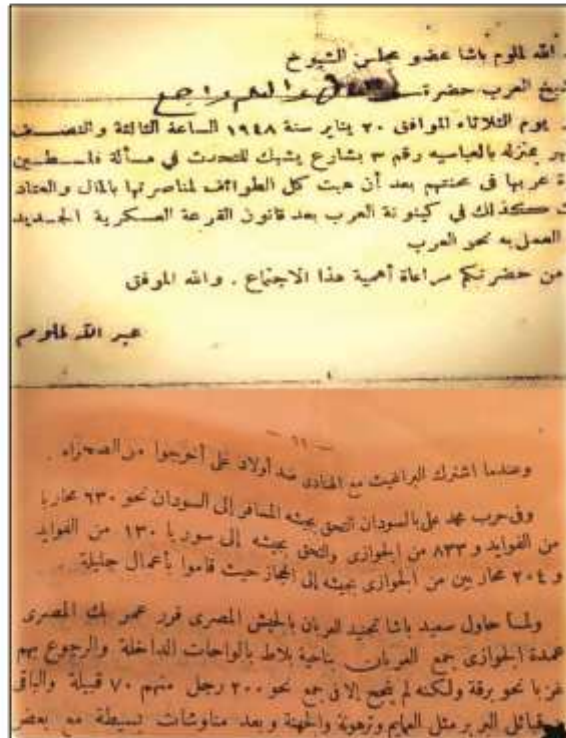 الله لملوم باشا عضو مجلس الشيوخ
شيخ العرب حضرة
يوم الثلاثاء الموافق ٢٠ يناير سنة ١٩٤٨ الساعة الثالثة والنصف
بمنزله بالعباسيه رقم ٣ بشارع يشبك للتحدث في مسألة فلسطين
عربها في محنتهم بعد أن هبت كل الطوائف لمناصرتها بالمال والعتاد
كذلك في كينونة العرب بعد قانون القرعة العسكرية الجديد
العمل به نحو العرب
من حضرتكم مراعاة أهمية هذا الاجتماع . والله الموفق
عبد الله لملوم
— ١١ —
وعندما اشترك البراغيث مع الهنادى ضد أولاد على أخرجوا من الصحراء .
وفى حرب محمد على بالسودان التحق بجيشه المسافر إلى السودان نحو ٦٣٠ محاربا
من الفوايد و ٨٣٣ من الجوازى والتحق بجيشه إلى سوريا ١٣٠ من الفوايد
و ٢٠٤ محاربين من الجوازى بجيشه إلى الحجاز حيث قاموا بأعمال جليلة .
ولما حاول سعيد باشا تجنيد العربان بالجيش المصرى قرر عمر بك المصرى
عمدة الجوازى جمع العربان بناحية بلاط بالواحات الداخلة والرجوع بهم
غربا نحو برقة ولكنه لم ينجح إلا فى جمع نحو ٢٠٠ رجل منهم ٧٠ قبيلة والباقى
قبائل البربر مثل العمايم وترهونة والجهنة وبعد مناوشات بسيطة مع بعض